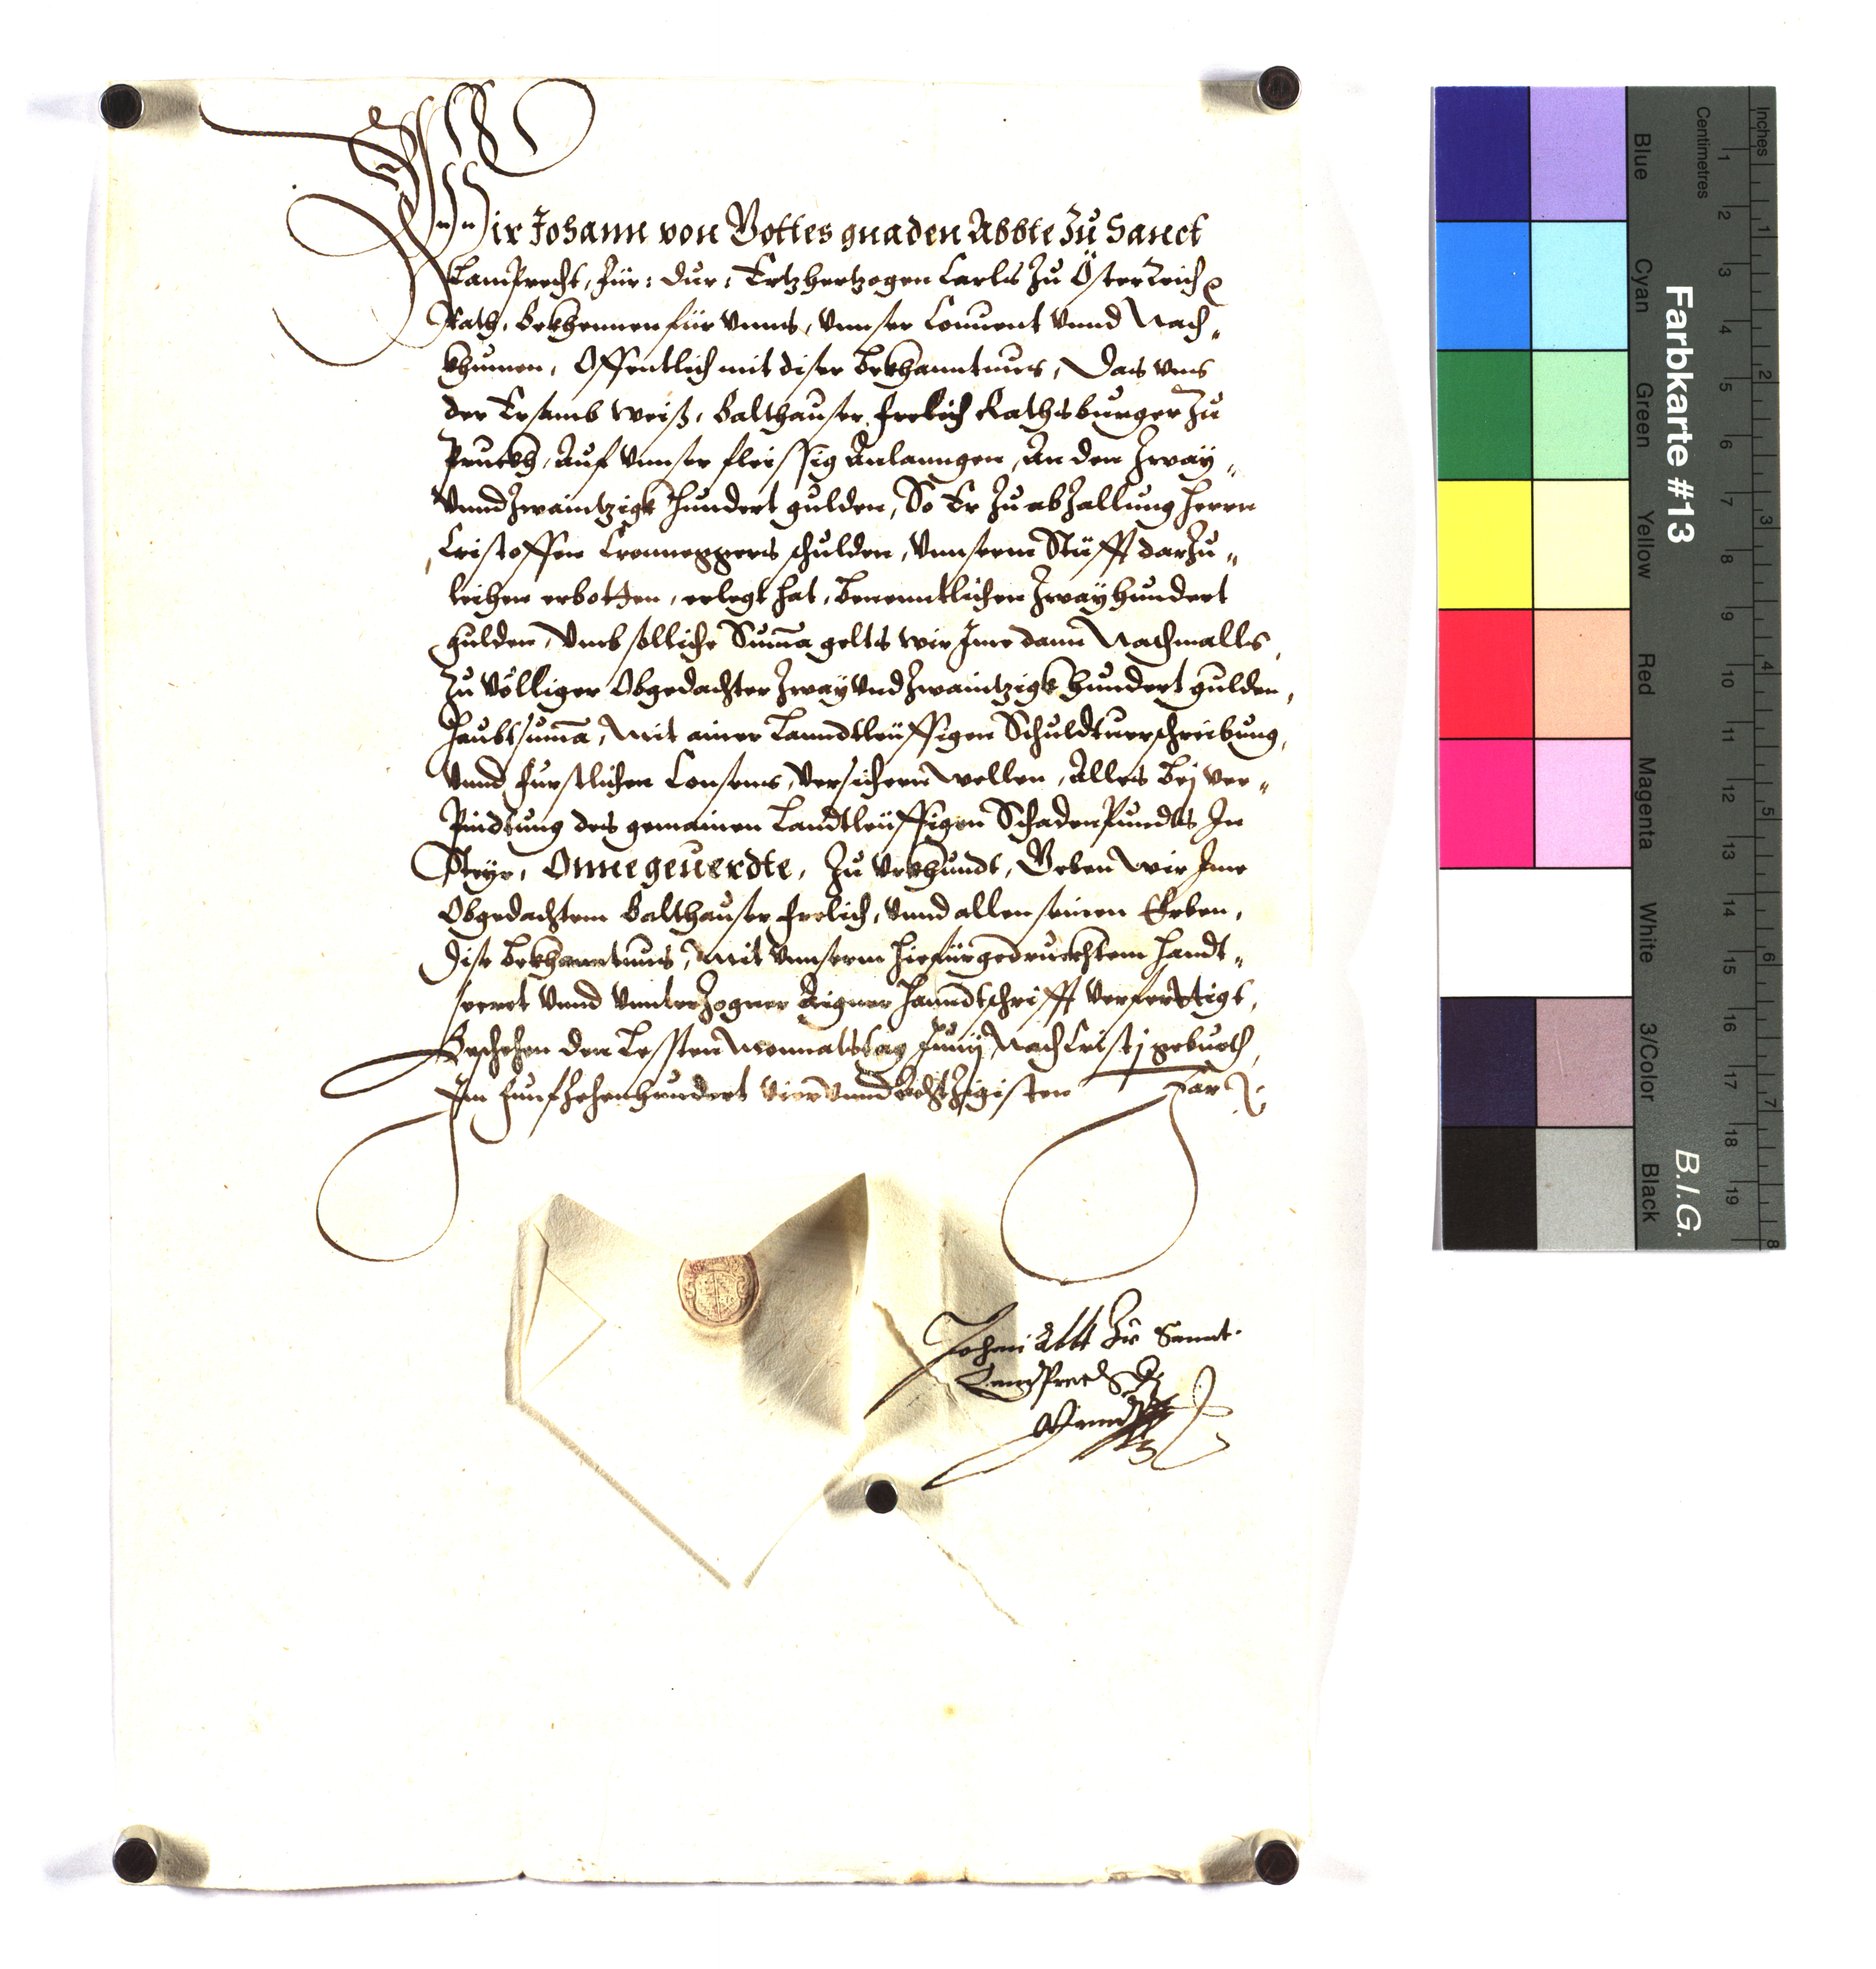 Wir Johann von Gottes gnaden Abbte Zu Sanct
Lamprecht, Für: Dur: Ertzhertzogen Carls Zu Österreich
Rath, Bekhennen für Vnns, Vnnser Conuent Vnnd Nach„
khumen, Offentlich mit diser Bekhanntnus, Das Vns
der Ersamb Weiß, Balthauser Frelich Rathsburger Zu
Pruckh, Auf Vnnser fleissig Anlanngen, An den Zway„
Vnnd Zwaintzigk hundert gulden, So Er Zu abZallung Herrn
Cristoffen Cronneggers schulden, Vnnserm Stüfft darZu„
leihen erbotten, erlegt hat, Benenntlichen Zway hundert
gulden, Vmb solliche Suma gelts wir Ime dann Nachmalls,
Zu Völliger Obgedachter Zway Vnd Zwaintzigk hundert gulden,
Haubtsuma, Mit ainer Lanndtleüffigen Schuldtuerschreibung,
Vnnd Furstlichen Consens, Versichern wellen, Alles Bej Ver„
Pindtung des gemainen Landtleüffigen SchadenPundts In
Steyr, Onne geuerdte, Zu Vrkhundt, Geben Wir Ime
Obgedachtem Balthauser Frelich, Vnnd allen seinen Erben,
Dise Bekhanntnus, Mit Vnnserm hiefürgedruckhtem Handt„
secret Vnnd Vnnterzogner Aigner Hanndtschrifft Verferttigt,
Geschehen den Lessten Monnatstag Junij Nach Cristj geburth,
Im Funfzehenhundert Vier Vnnd Achtzigisten Jar
Johan Abbt Zu Sannt
Lamprecht